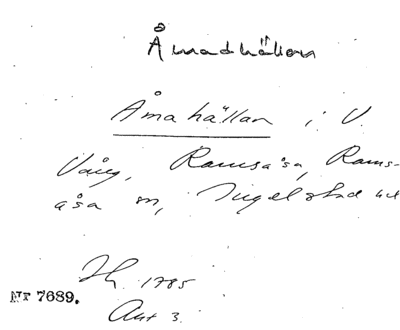 Åmadhällan
Åmahällan i V.
Vång, Ramsåsa, Rams-
åsa sn, Ingelstad hd
H. 1785
Akt 3.
Nr 7689.